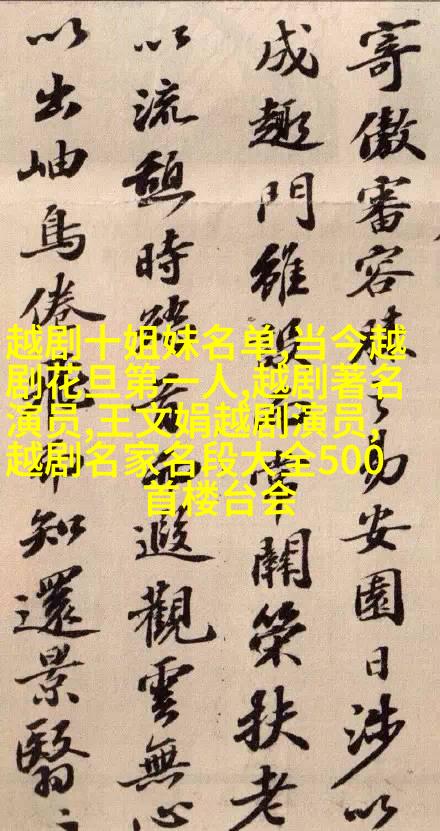 寄傲審容膝之易安園日涉以
成趣門雖設而常關策扶老
以流憩時矯首而遐觀雲無心
以出岫鳥倦飛而知還景翳
越剧十姐妹名单,当今越
剧花旦第一人,越剧著名
演员,王文娟越剧演员,
越剧名家名段大全500
首楼台会